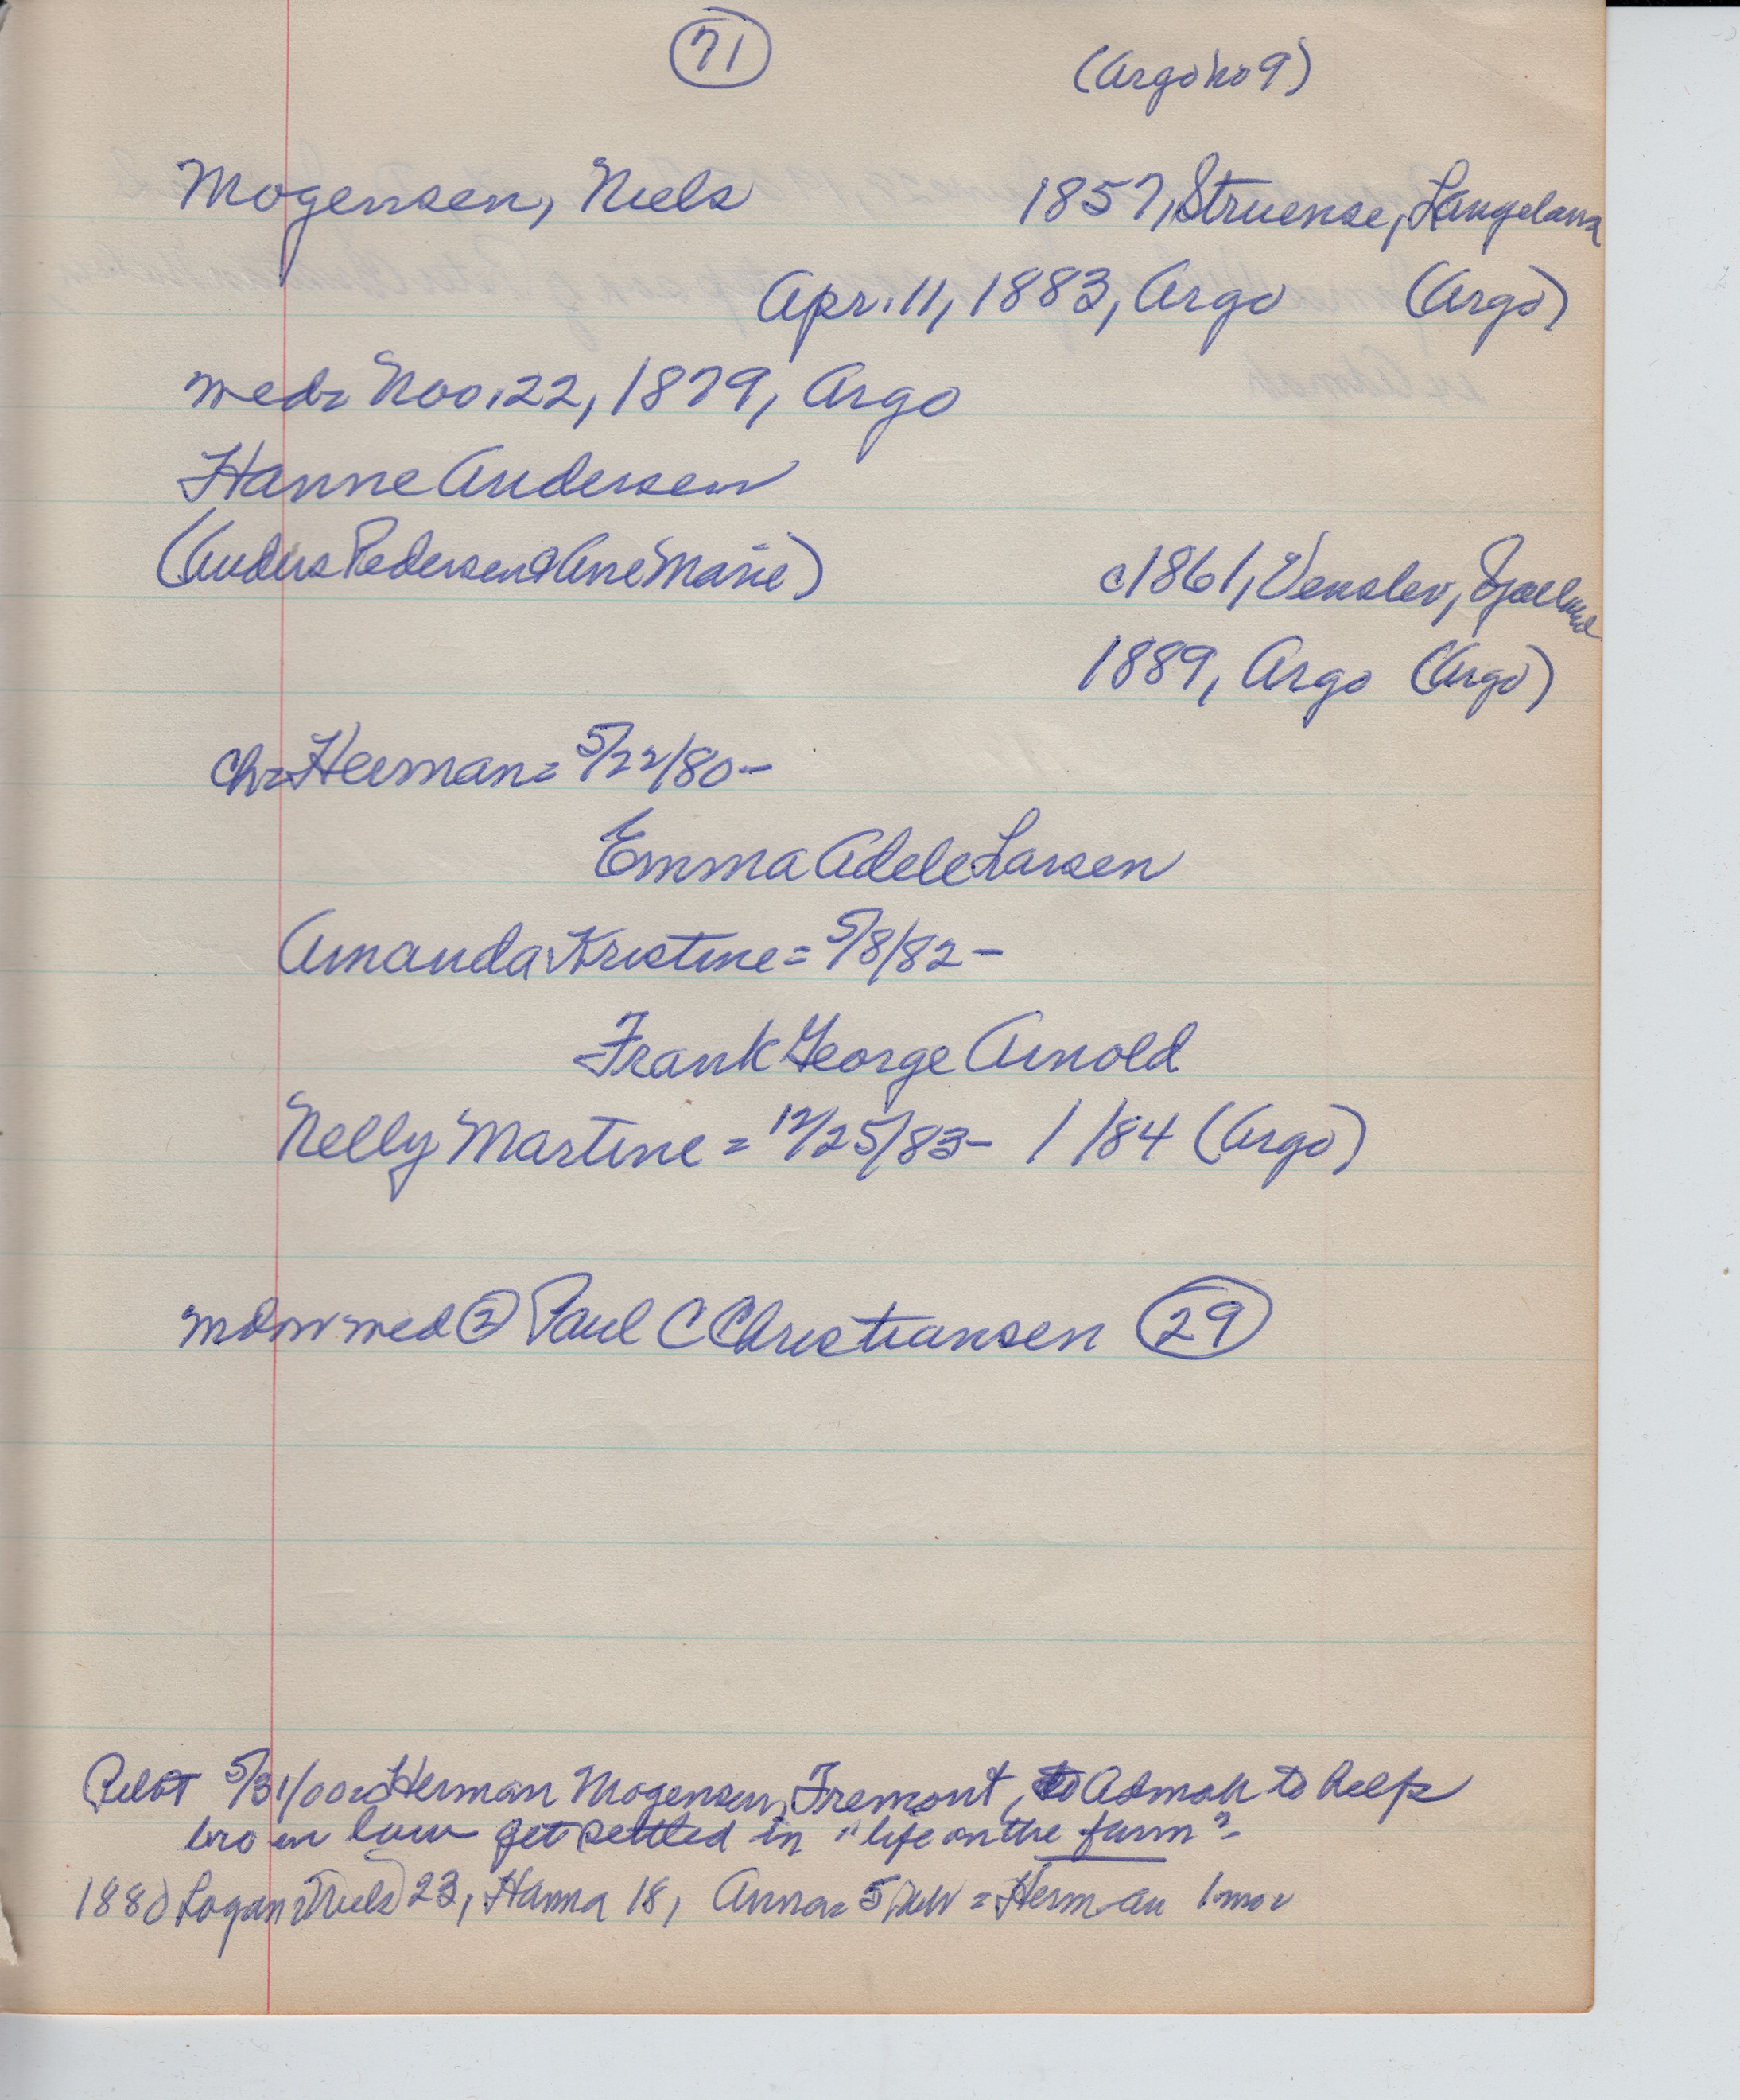 71
(Argo no 9)
Mogensen, Niels 1857, Struense, Langeland
Apr. 11, 1883, Argo (Argo)
wed= Nov. 22, 1879, Argo
Hanne Andersen
(Anders Pedersen & Ane Marie)
c1861, Venslev, Sjaelland
1889, Argo (Argo)
Ch= Herman= 5/22/80-
Emma Adele Larsen
Amanda Kristine = 5/8/82-
Frank George Arnold
Nelly Martine = 12/25/83- 1/ /84 (Argo)
wed ② Paul C Christiansen 29
5/31/00= Herman Mogensen, Fremont, to Admah to help
bro in law get settled in "life on the farm"-
1880 Logan= Niels 23, Hanna 18, Herman 1 mo